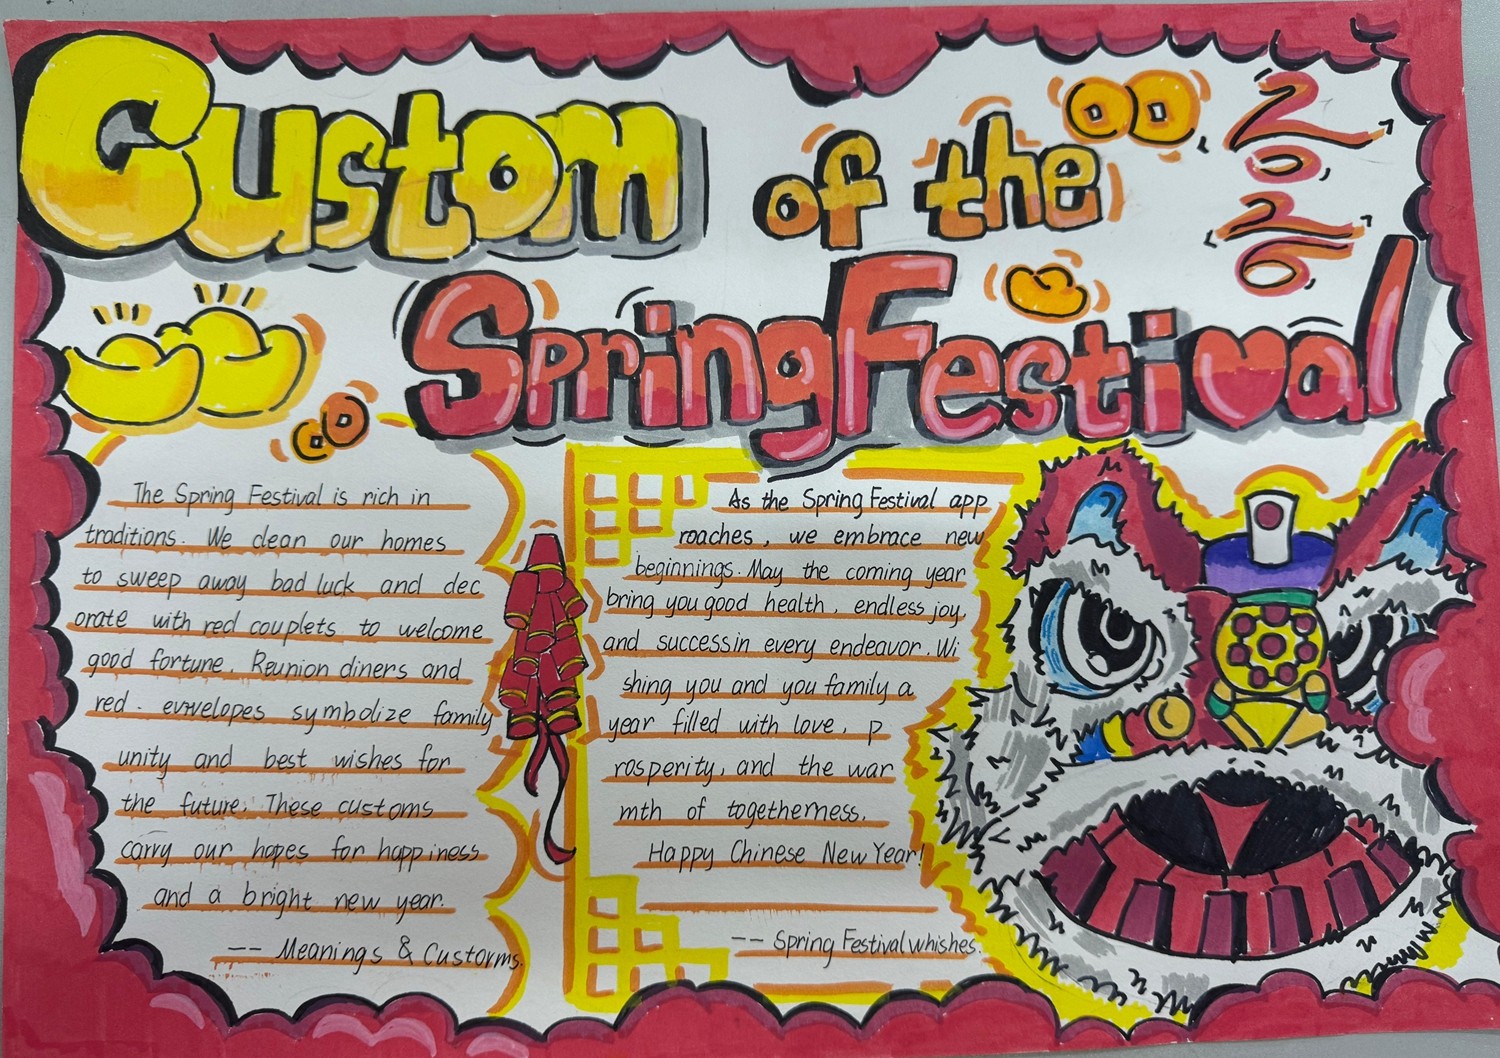 Custom of the
2026
Spring Festival
The Spring Festival is rich in
traditions. We clean our homes
to sweep away bad luck and dec
orate with red couplets to welcome
good fortune. Reunion diners and
red. envelopes symbolize family
unity and best wishes for
the future. These customs
carry our hopes for happiness
and a bright new year.
-- Meanings & Customs.
As the Spring Festival app
roaches, we embrace new
beginnings. May the coming year
bring you good health, endless joy,
and successin every endeavor. Wi
shing you and you family a
year filled with love, p
rosperity, and the war
mth of togetherness.
Happy Chinese New Year!
-- Spring Festival whishes.